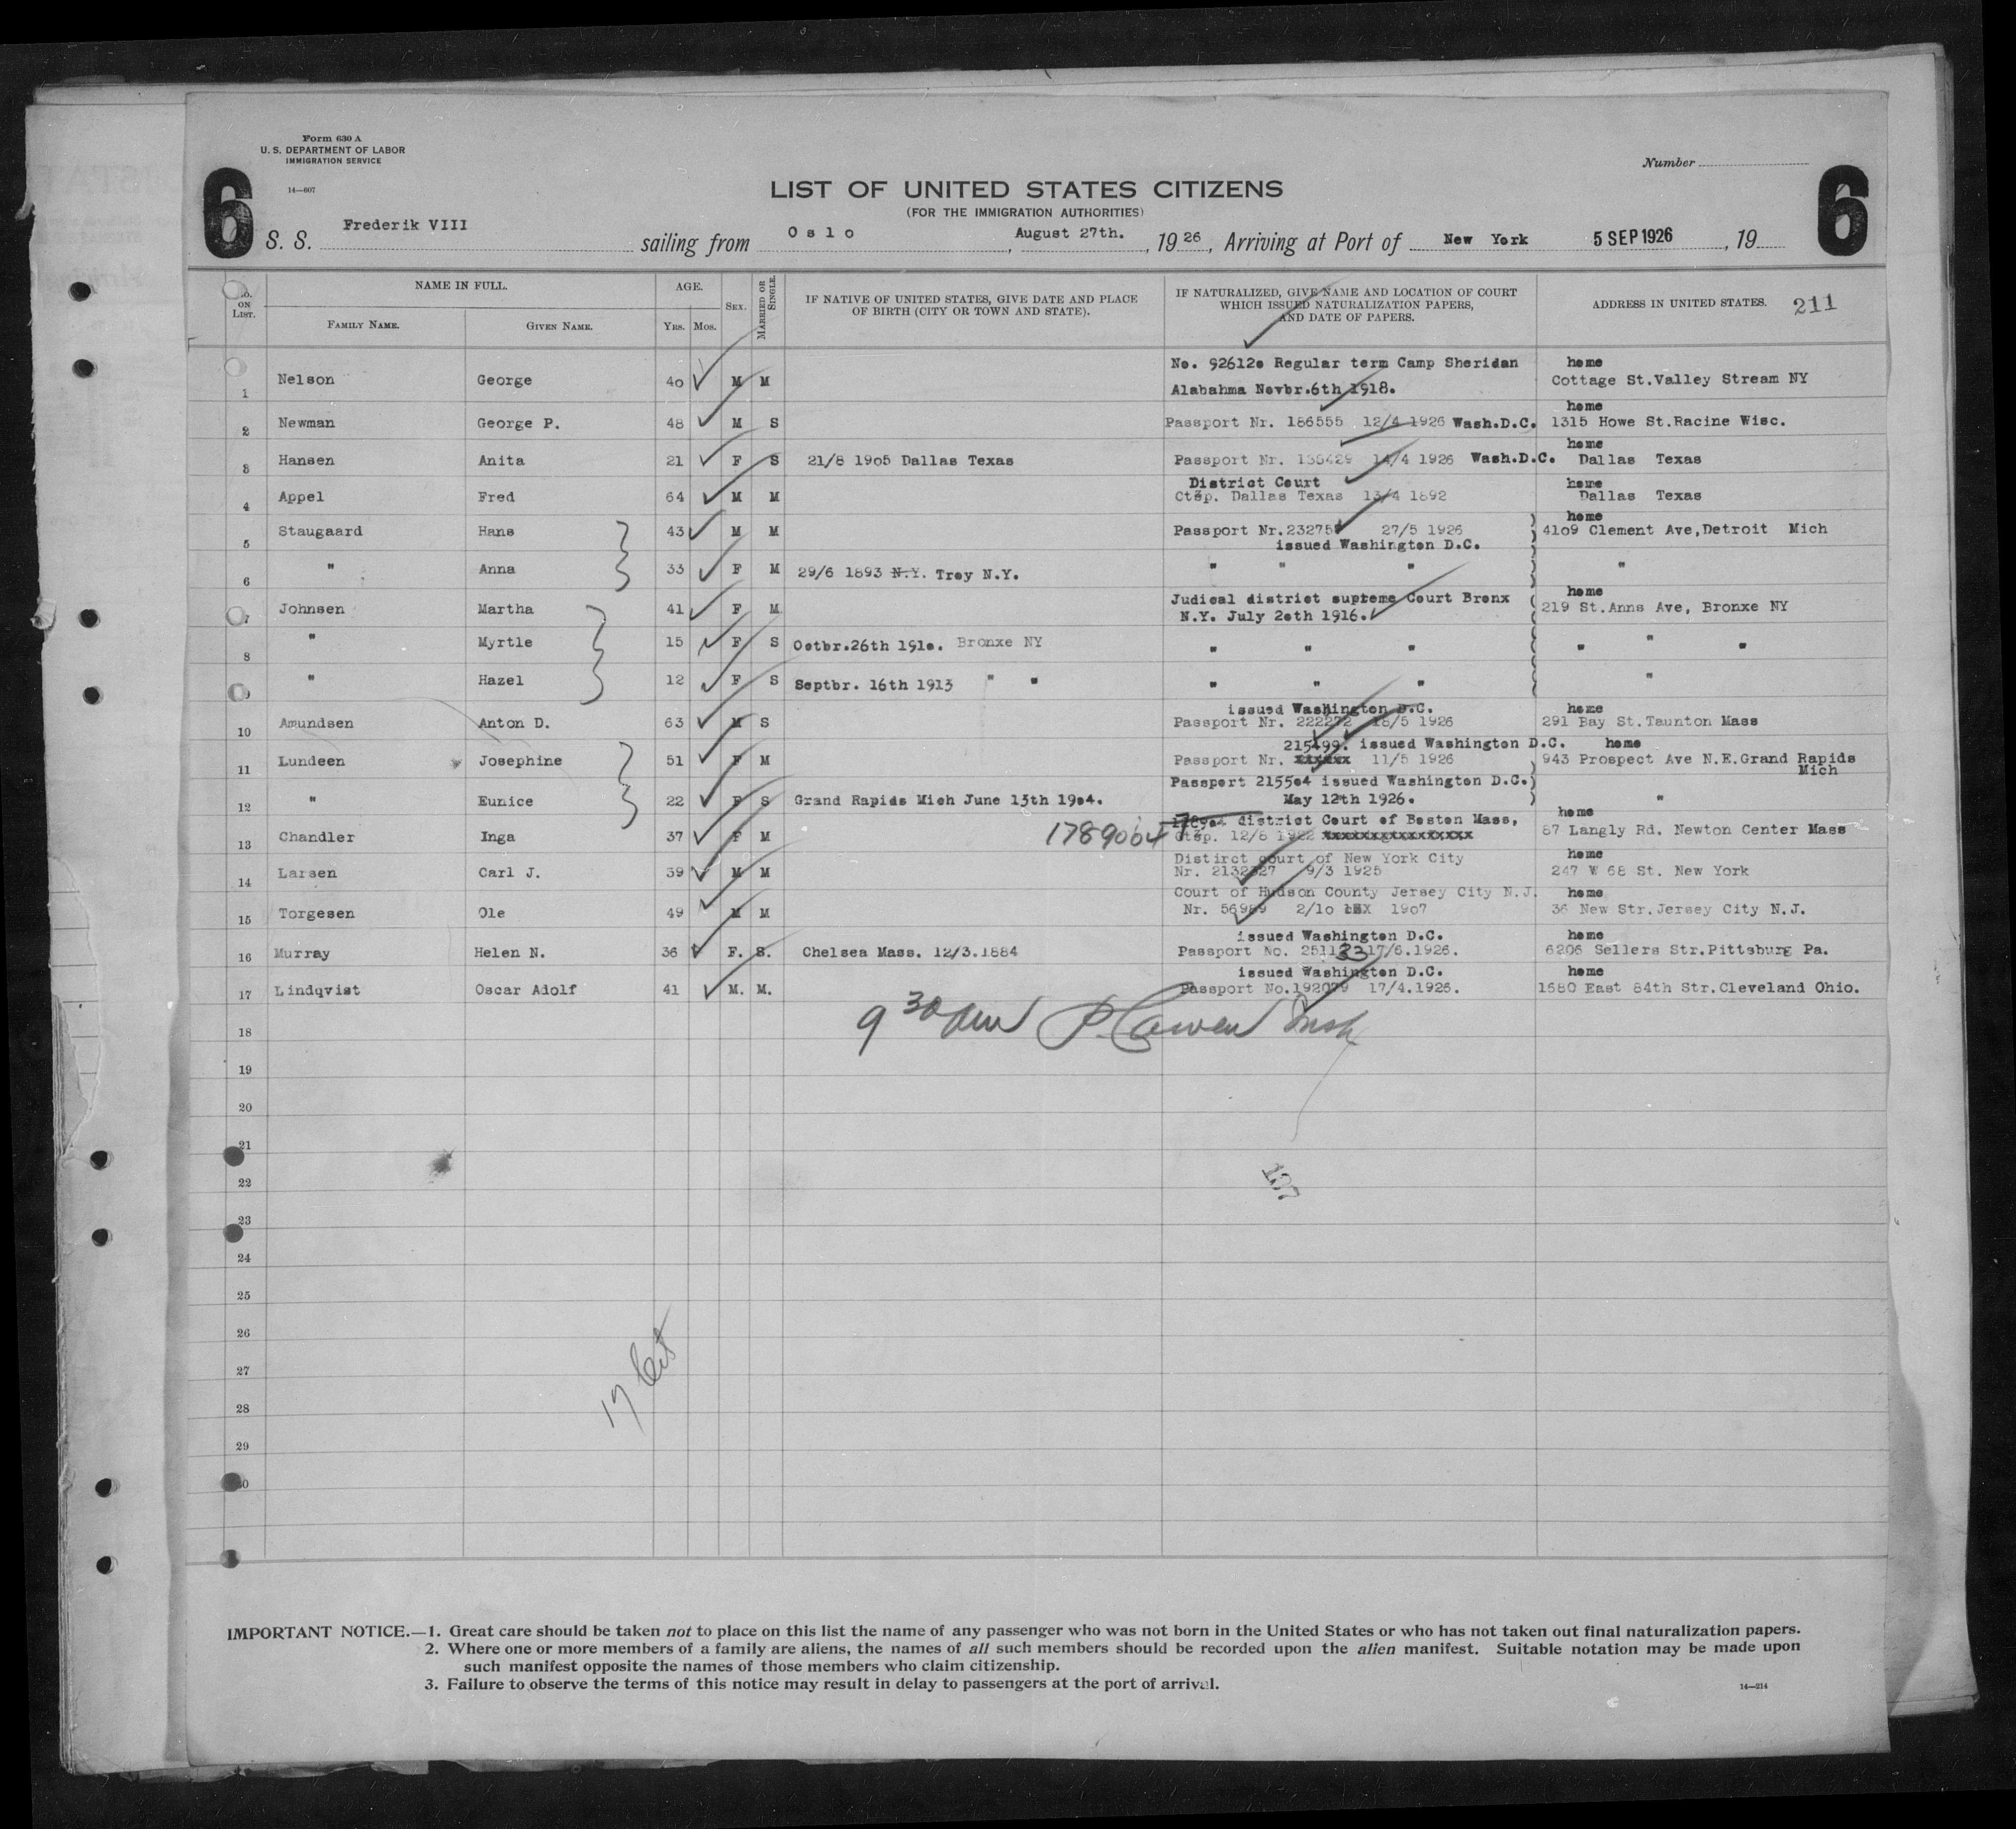 Form 630 A
U. S. DEPARTMENT OF LABOR
IMMIGRATION SERVICE
14—607
Number
6 6
LIST OF UNITED STATES CITIZENS
(FOR THE IMMIGRATION AUTHORITIES)
S. S. Frederik VIII sailing from Oslo, August 27th., 1926, Arriving at Port of New York 5 SEP 1926, 19
No. ON LIST. NAME IN FULL. FAMILY NAME. GIVEN NAME. AGE. YRS. MOS. SEX. MARRIED OR SINGLE. IF NATIVE OF UNITED STATES, GIVE DATE AND PLACE OF BIRTH (CITY OR TOWN AND STATE). IF NATURALIZED, GIVE NAME AND LOCATION OF COURT WHICH ISSUED NATURALIZATION PAPERS, AND DATE OF PAPERS. ADDRESS IN UNITED STATES. 211
No. 92612o Regular term Camp Sheridan home
1 Nelson George 4o M M Alabahma Novbr.6th 1918. Cottage St.Valley Stream NY
home
2 Newman George P. 48 M S Passport Nr. 186555 12/4 1926 Wash.D.C. 1315 Howe St.Racine Wisc.
home
3 Hansen Anita 21 F S 21/8 19o5 Dallas Texas Passport Nr. 14/4 1926 Wash.D.C. Dallas Texas
District Court home
4 Appel Fred 64 M M Ctsp. Dallas Texas 13/4 1892 Dallas Texas
home
5 Staugaard Hans 43 M M Passport Nr.23275 27/5 1926 41o9 Clement Ave,Detroit Mich
issued Washington D.C.
6 " Anna 33 F M 29/6 1893 N.Y. Troy N.Y. " " " "
Judical district supreme Court Bronx home
7 Johnsen Martha 41 F M N.Y. July 2oth 1916. 219 St.Anns Ave, Bronxe NY
8 " Myrtle 15 F S Octbr.26th 191o. Bronxe NY " " " " " "
9 " Hazel 12 F S Septbr. 16th 1913 " " " " " "
issued Washington D.C. home
10 Amundsen Anton D. 63 M S Passport Nr. 222272 18/5 1926 291 Bay St.Taunton Mass
215499. issued Washington D.C. home
11 Lundeen Josephine 51 F M Passport Nr. xxxxxx 11/5 1926 943 Prospect Ave N.E.Grand Rapids Mich
Passport 2155o4 issued Washington D.C.
12 " Eunice 22 F S Grand Rapids Mich June 13th 19o4. May 12th 1926. "
district Court of Boston Mass, home
13 Chandler Inga 37 F M Ctsp. 12/6 1922 xxxxxxxxxxxxxxxxx 87 Langly Rd. Newton Center Mass
Distirct court of New York City home
14 Larsen Carl J. 39 M M Nr. 2132327 9/3 1925 247 W 68 St. New York
Court of Hudson County Jersey City N.J. home
15 Torgesen Ole 49 M M Nr. 56989 2/1o 19o7 36 New Str.Jersey City N.J.
issued Washington D.C. home
16 Murray Helen N. 36 F. S. Chelsea Mass. 12/3.1884 Passport No. 251133 17/6.1926. 6206 Sellers Str.Pittsburg Pa.
issued Washington D.C. home
17 Lindqvist Oscar Adolf 41 M. M. Passport No.192079 17/4.1926. 1680 East 84th Str.Cleveland Ohio.
18 9 30 am
19
20
21
22
137
23
24
25
26
27
28 17 Cit
29
30
IMPORTANT NOTICE.—1. Great care should be taken not to place on this list the name of any passenger who was not born in the United States or who has not taken out final naturalization papers.
2. Where one or more members of a family are aliens, the names of all such members should be recorded upon the alien manifest. Suitable notation may be made upon
such manifest opposite the names of those members who claim citizenship.
3. Failure to observe the terms of this notice may result in delay to passengers at the port of arrival.
14—214